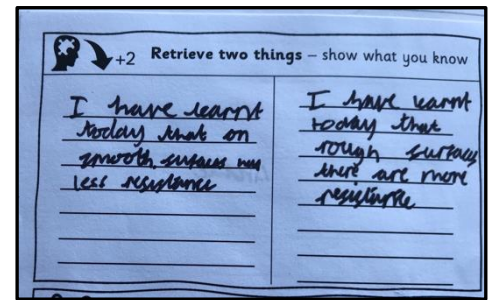 +2 Retrieve two things – show what you know
I have learnt
today that on
smooth surfaces has
less resistance
I have learnt
today that
rough surfaces
there are more
resistance